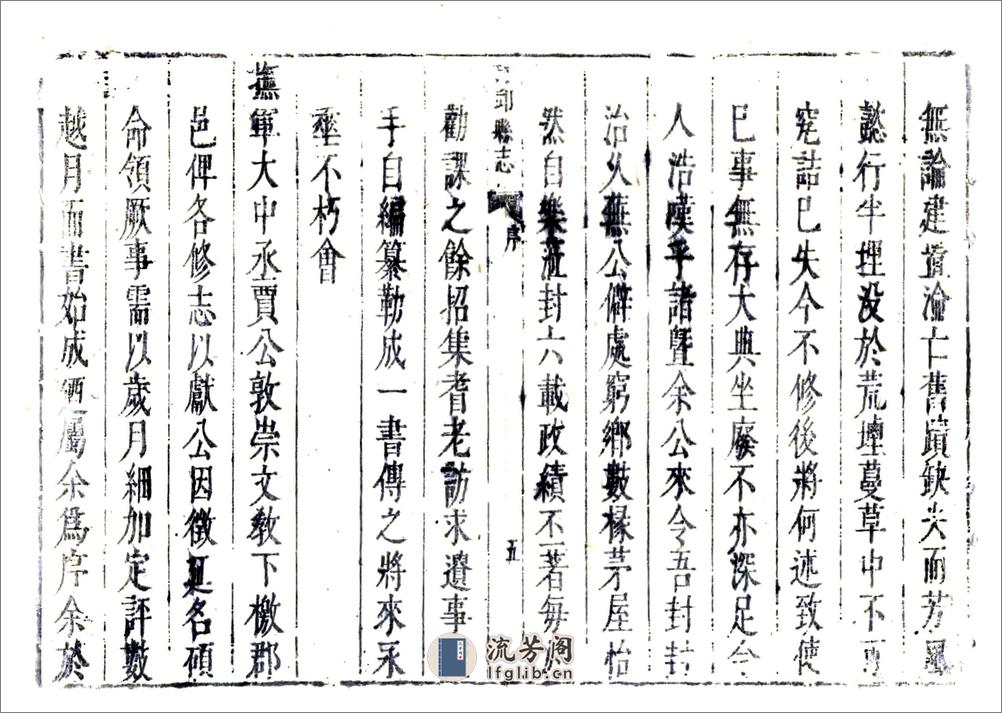 無論建置淪亡舊蹟缺失而芳
懿行半埋沒於荒壠蔓草中不可
究詰已失今不修後將何述致使
已事無存大典坐廢不亦深足今
人浩嘆乎諸暨余公來令吾封封
治久蕪公僻處窮鄉數椽茅屋怡
然自樂蒞封六載政績不著每
邱縣志
序
五
勸課之餘招集耆老訪求遺事
手自編纂勒成一書傳之將來永
垂不朽會
撫軍大中丞賈公敦崇文教下檄郡
邑俾各修志以獻公因徵名碩
命領厥事需以歲月細加定評數
越月而書始成屬余爲序余於
流芳阁
lfglib.cn